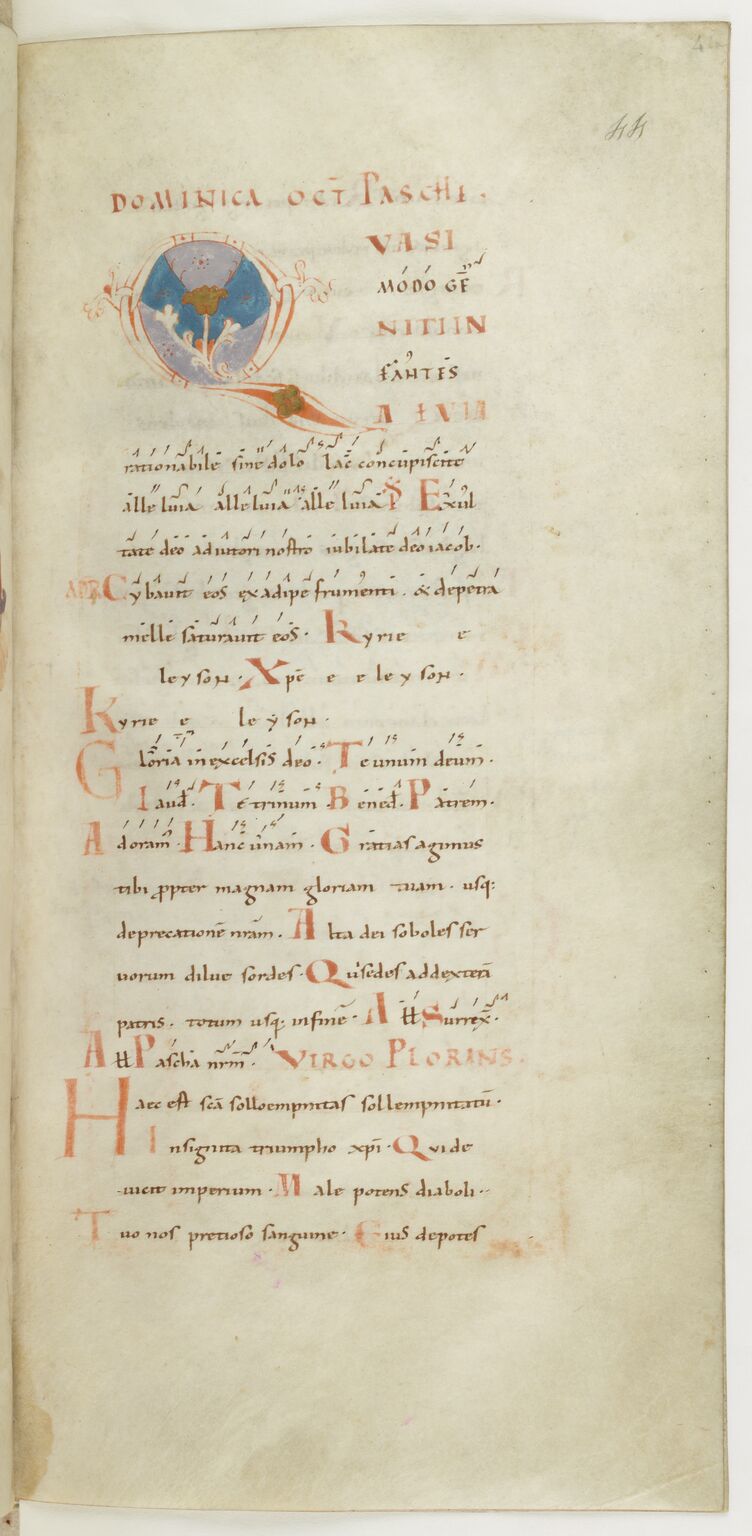 44
DOMINICA OCT̄ PASCHE.
QVASI
MODO GE
NITI IN
FANTES
A EVIA
rationabile sine dolo lac̄ concupiscite
alleluia alleluia alleluia Ps̄ Exul
tate deo adiutori nostro iubilate deo iacob.
Cybauit eos ex adipe frumenti. & de petra
melle saturauit eos. Kyrie e
leyson. Xp̄e e e leyson.
Kyrie e leyson.
Gloria in excelsis deo. Te unum deum.
Laud̄. Te trinum Bened̄. Patrem.
Adoram̄. Hanc unam. Gratias agimus
tibi ꝓpter magnam gloriam tuam. usq;
deprecationē nr̄am. Alta dei soboles ser
uorum dilue sordes. Qui sedes ad dexterā
patris. totum usq; in finē. All Surrex̄.
All Pascha nr̄m̄. VIRGO PLORANS.
Haec est sc̄a solloempnitas sollempnitatū.
Insignita triumpho xp̄i. Qui de
uicit imperium. Male potens diaboli.
Tuo nos pretioso sanguine. Eius de potes